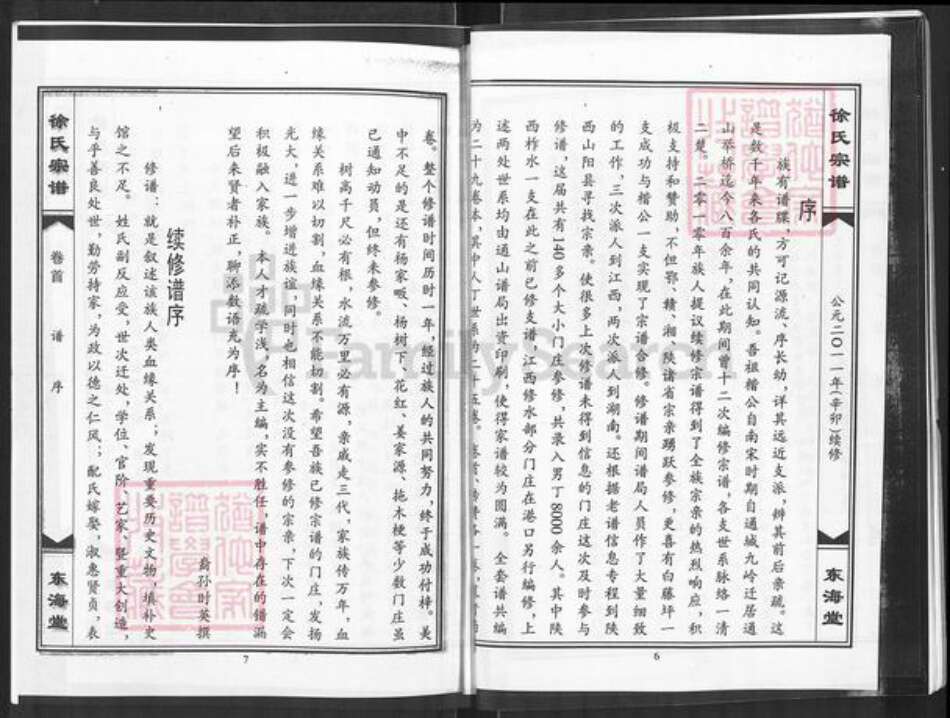 徐氏宗谱
公元二〇一一年(辛卯)续修
东海堂
序
族有谱牒,方可记源流、序长幼,详其远近支派,辨其前后亲疏。这
是数千年来各氏的共同认知。吾祖楷公自南宋时期自通城九岭迁居通
山茶桥迄今八百余年,在此期间曾十二次编修宗谱,各支世系脉络一清
二楚。二零一零年族人提议续修宗谱得到了全族宗亲的热烈响应,积
极支持和赞助,不但鄂、赣、湘、陕诸省宗亲踴跃参修,更喜有白藤坪一
支成功与楷公一支实现了宗谱合修。修谱期间谱局人员作了大量细致
的工作,三次派人到江西,两次派人到湖南。还根据老谱信息专程到陕
西山阳县寻找宗亲。使很多上次修谱未得到信息的门庄这次及时参与
修谱,这届共有140多个大小门庄参修,共录入男丁8000余人。其中陕
西柞水一支在此之前已修支谱,江西修水部分门庄在港口另行编修,上
述两处世系均由通山谱局出资印刷,使得家谱较为圆满。全套谱共编
为二十九卷本,其中人丁世系
6
卷。整个修谱时间历时一年,经过族人的共同努力,终于成功付梓。美
中不足的是还有杨家畈、杨树下、花红、姜家源、拖木梗等少数门庄虽
已通知动员,但终未参修。
树高千尺必有根,水流万里必有源,亲戚走三代,家族传万年,血
缘关系难以切割,血缘关系不能切割。希望吾族已修宗谱的门庄,发扬
光大,进一步增进族谊,同时也相信这次没有参修的宗亲,下次一定会
积极融入家族。本人才疏学浅,名为主编,实不胜任,谱中存在的错漏
望后来贤者补正,聊添数语充为序!
裔孙时英撰
续修谱序
修谱:就是叙述该族人类血缘关系;发现重要历史文物,填补史
馆之不足。姓氏副反应受,世次迁处,学位、官阶、艺家、竖重大创造,
与乎善良处世,勤劳持家,为政以德之仁风;配氏嫁娶,淑惠贤贞,表
徐氏宗谱
卷首
谱
序
东海堂
7
FamilySearch